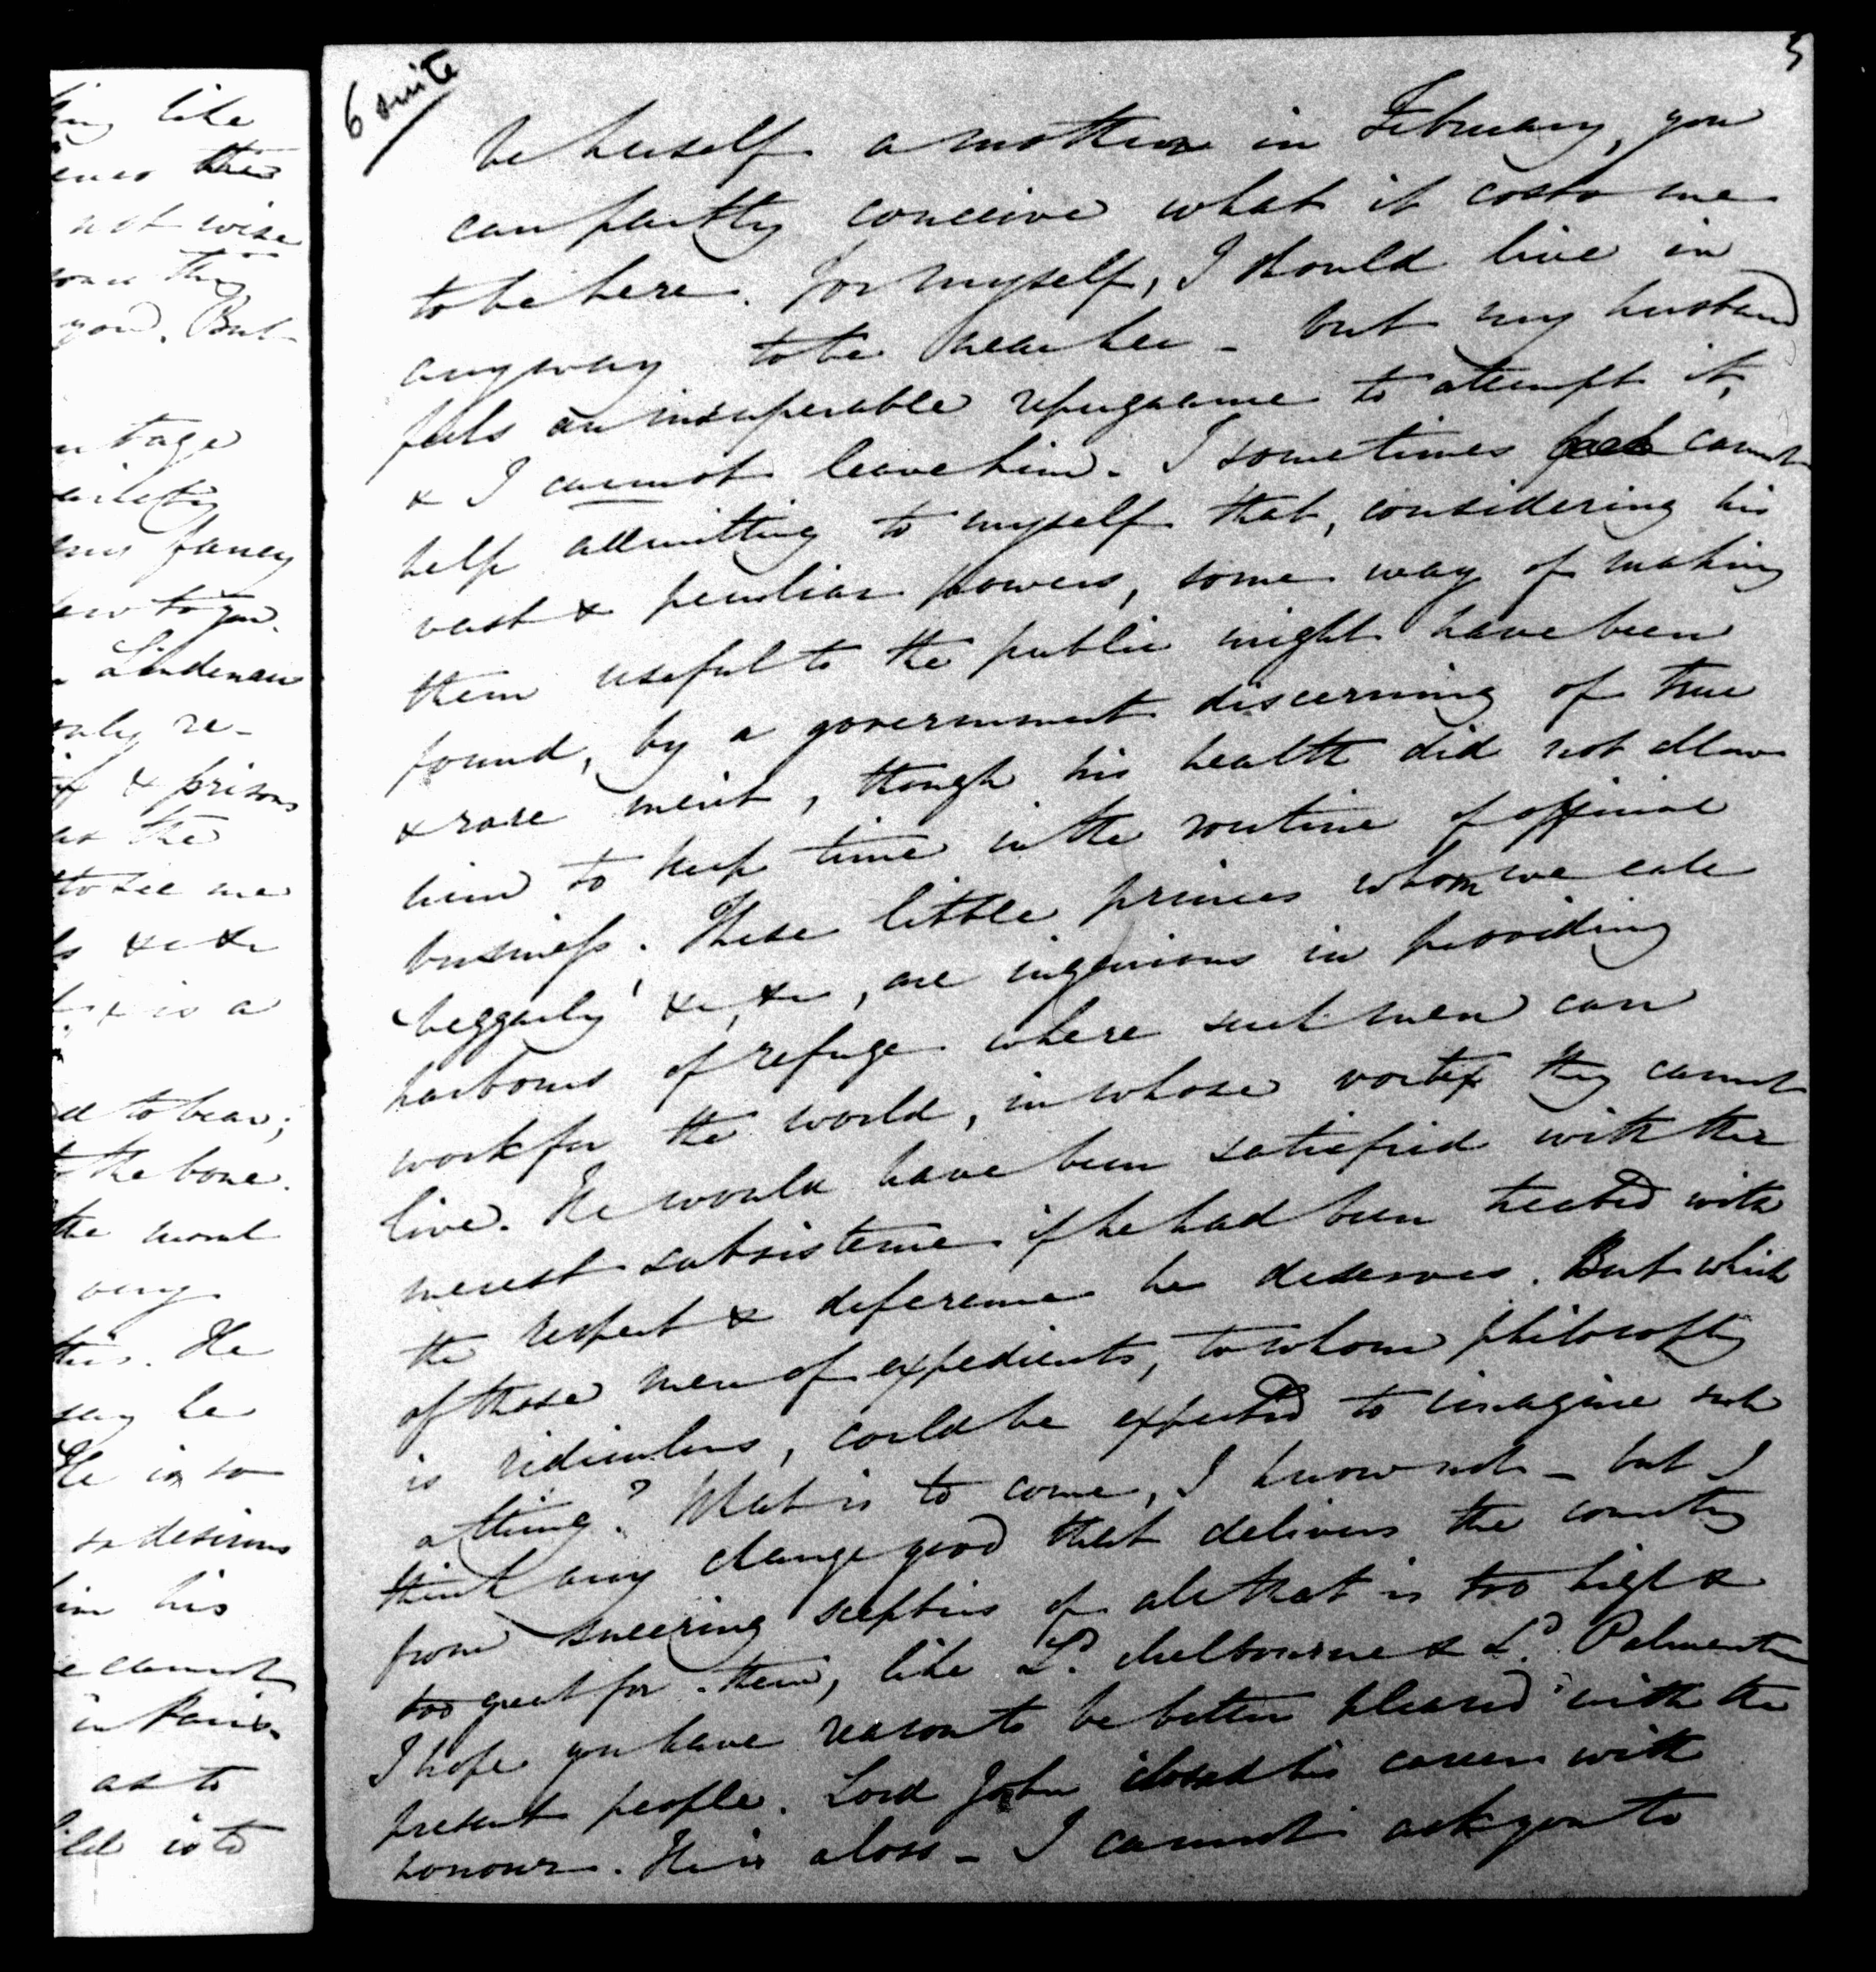 ing like
not wise
you. But
fancy
Lindenau
only re-
& prisons
as the
to see me
&c &c
& is a
to bear;
the bone.
the moral
very
He
say he
He is so
so desirous
him his
cannot
in Paris.
as to
is to
6 suite
5
be herself a mother in February, you
can partly conceive what it costs me
to be here. For myself, I should live in
anyway to be near her – but my husband
feels an insuperable repugnance to attempt it,
& I cannot leave him. I sometimes cannot
help admitting to myself that, considering his
vast & peculiar powers, some way of making
them useful to the public might have been
found, by a government discerning of true
& rare merit, though his health did not allow
him to keep time in the routine of official
business. These little princes whom we call
'beggarly' &c, &c, are ingenious in providing
harbours of refuge where such men can
work for the world, in whose vortex they cannot
live. He would have been satisfied with the
merest subsistence if he had been treated with
the respect & deference he deserves. But which
of these men of expedients, to whom philosophy
is ridiculous, could be expected to imagine such
a thing? What is to come, I know not – but I
think any change good that delivers the country
from sneering sceptics of all that is too high &
too great for them, like Ld. Melbourne & Ld. Palmerston
I hope you have reason to be better pleased with the
present people. Lord John closed his career with
honour. He is a loss – I cannot ask you to